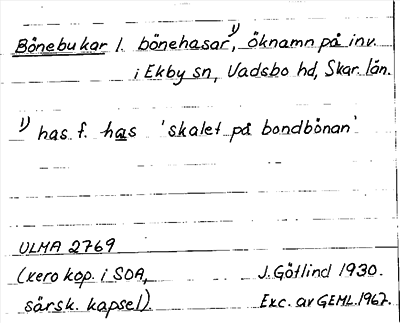 Bönebukar l. bönehasar¹⁾, öknamn på inv.
i Ekby sn, Vadsbo hd, Skar. län.
¹⁾ has f. has 'skalet på bondbönan'
ULMA 2769
(xerokop. i SOA,
särsk. kapsel)
J. Götlind 1930.
Exc. av GEML. 1967.